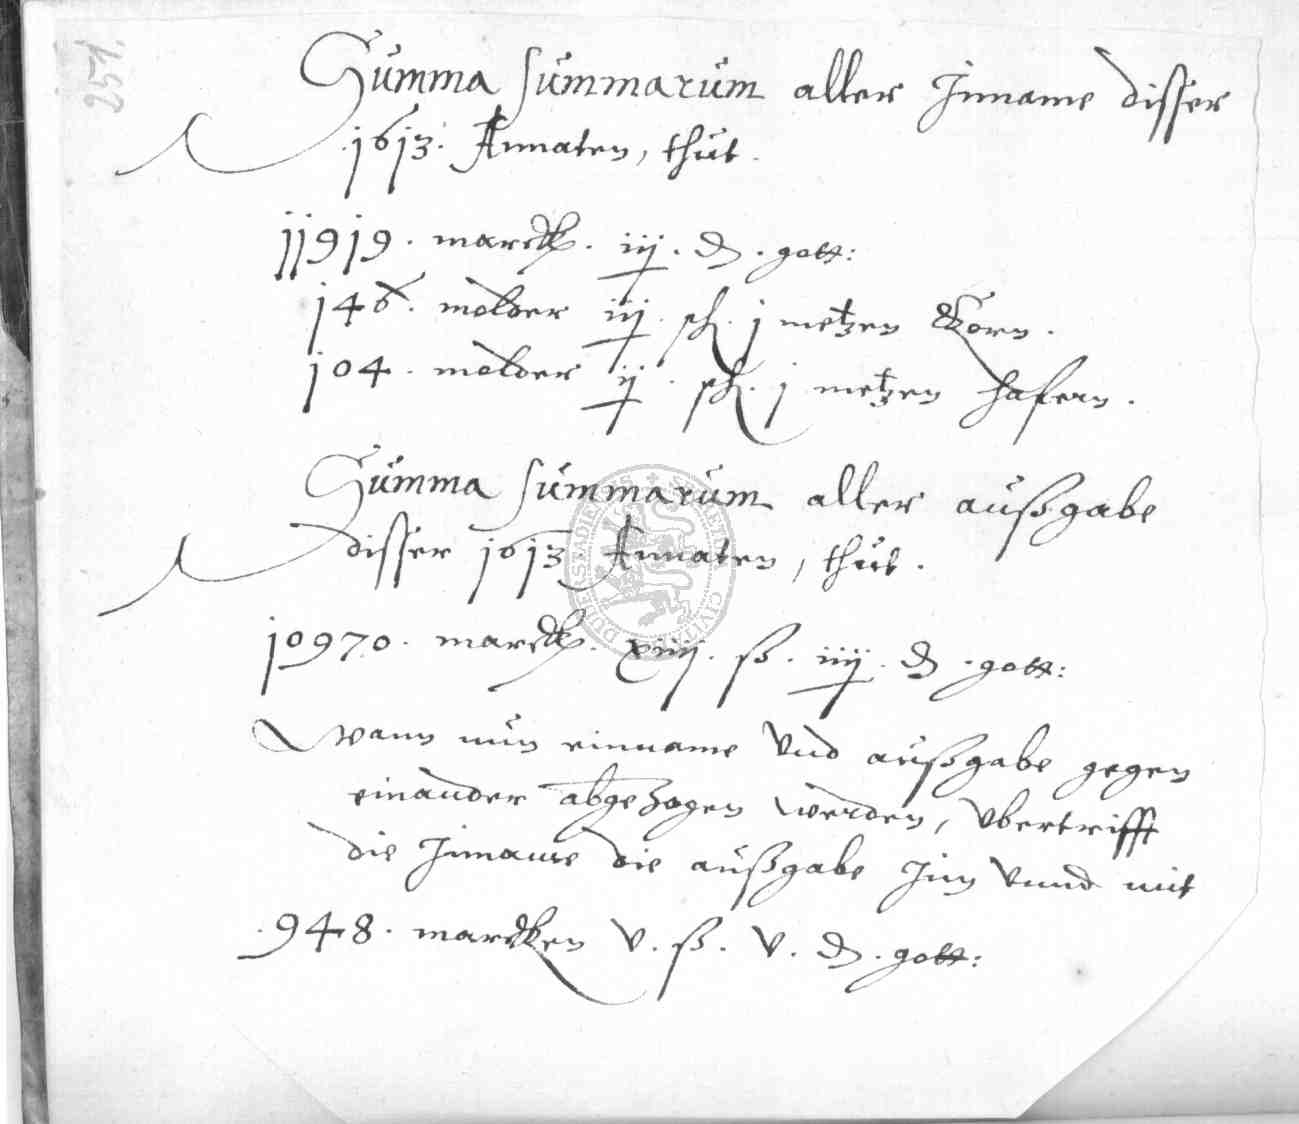 251.
Summa summarum aller Inname disser
.1613. Annaten, thut.
11919. marck. iij. d. gott:
146. molder iij. sch. j metzen Korn.
104. molder ij. sch. j metzen hafern.
Summa summarum aller außgabe
disser 1613 Annaten, thut.
10970. marck. xiiij. ß. iiij. d. gott:
Wann nun einname Vnd außgabe gegen
einander abgezogen werden, vbertrifft
die Inname die außgabe Inn Vnnd mit
.948. marcken v. ß. v. d. gott: